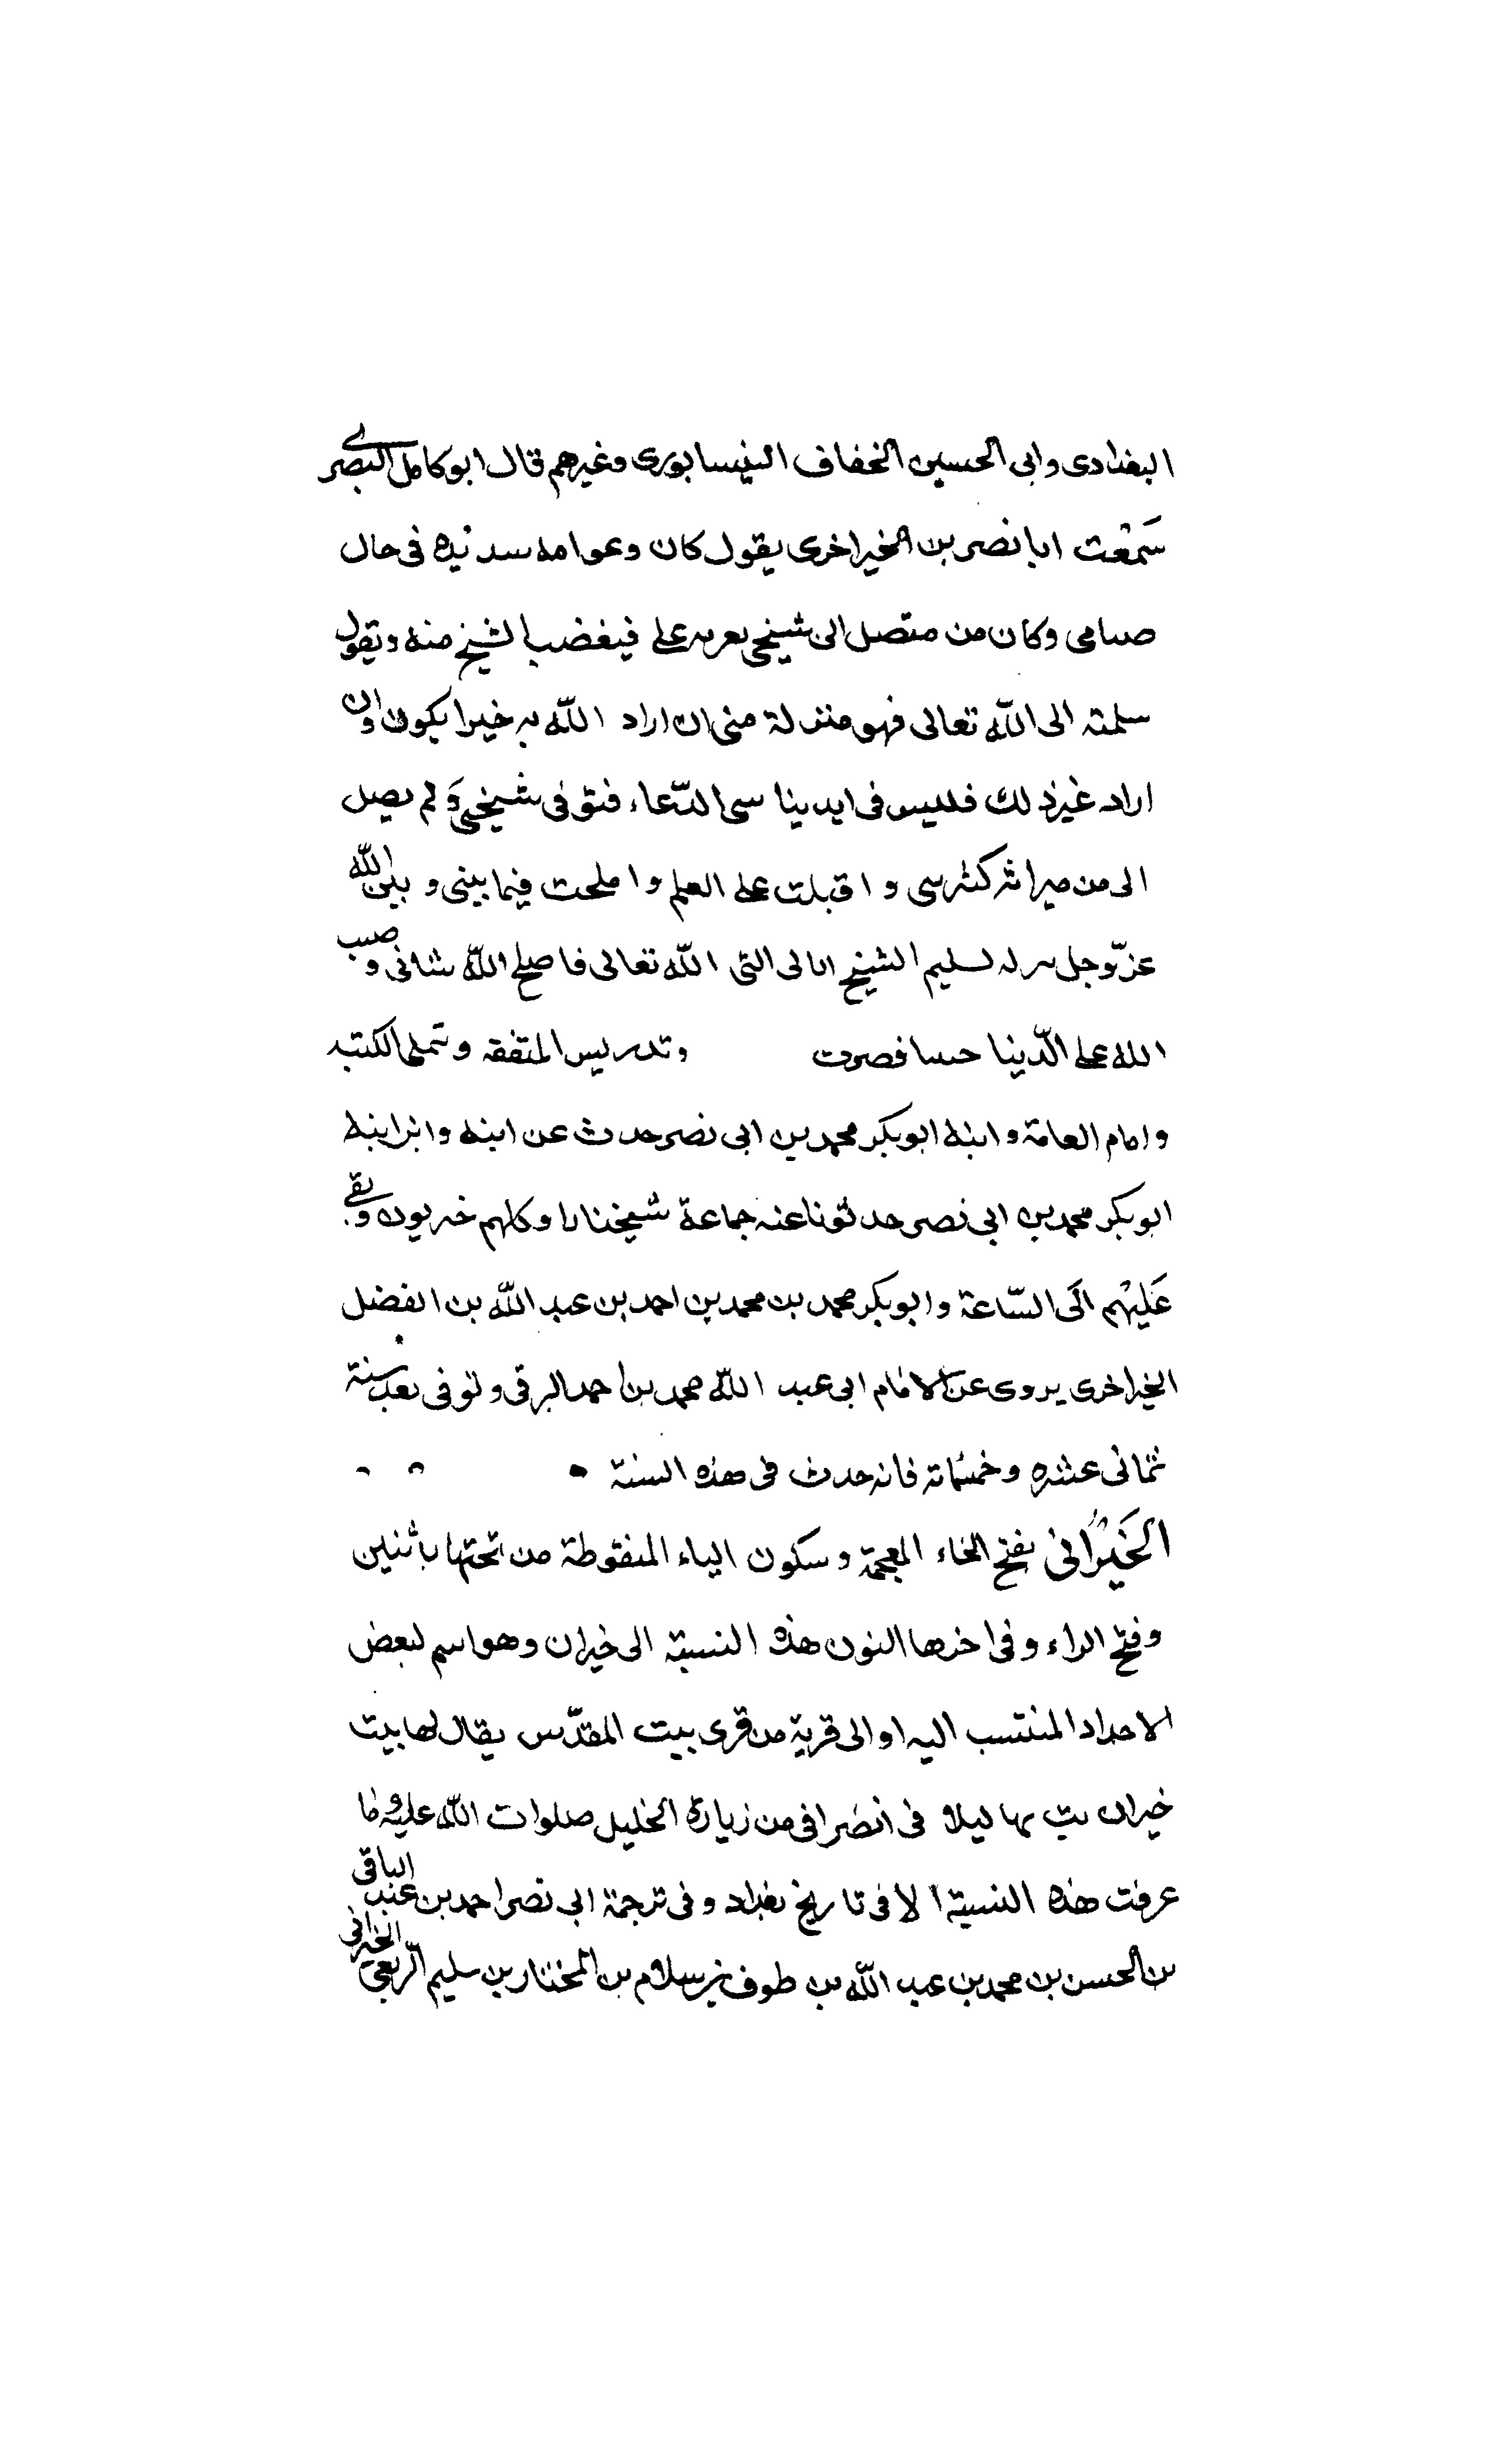 البغدادى وابى الحسين الخفاف النيسابورى وغيرهم قال ابو كامل البصرے
سَمعْت ابا نصر بن الخيراخرى يقول كان وعوامه سدنده فى حال
صامى وكان من متصل الى شيخى يعرىه على فيغضب الشيخ منه ويقول
سلمته الى اللّه تعالى فهو منزلة منى ان اراد اللّه به خيرا يكون وان
اراد غير ذلك فليس فى ايدينا سى الدّعاء فتوفى شيخى وَلم يصل
الى من ميراثه كثرسى و اقبلت على العلم واملحت فيما بينى و بين اللّه
عزّوجل سرله لسليم الشيخ ابالى التى اللّه تعالى فاصلح اللّه شانى وصبب
الله على الدّينا حسا فصرت وتدريس المتفقه وتملى الكتبه
وامام العامة وابنه ابوبكر محمد بن ابى نصر حدث عن ابيه وابن ابنه
ابوبكر محمد بن ابى نصر حدثونا عنه جماعة شيخنارا وكلهم خربون وبقے
عَليْهم الَى السّاعة وابوبكر محمد بن محمد بن احمد بن عبد اللّه بن الفضل
الخيراخرى يروى عن الامام ابى عبد اللّه محمد بن احمد البرقى وتوفى بعد سنة
ثمانى عشره وخمسمائة فانه حدث فى هذه السنة
الخَيْرانى بفتح الخاء المعجمة وسكون الياء المنقوطة من تحتها باثنين
وفتح الراء وفى اخرها النون هذه النسبة الى خيران وهو اسم لبعض
الاجداد المنتسب اليه او الى قرية من قرى بيت المقدّس يقال لها بيت
خيران بت بها ليلة فى انصرافى من زيارة الخليل صلوات اللّه عليه وما
عرفت هذه النسبة الا فى تاريخ بغداد وفى ترجمة ابى نصر احمد بن عبد الباقى
بن الحسن بن محمد بن عبد اللّه بن طوف بن سلام بن المختار بن سليم الرّبعى الخيرانى